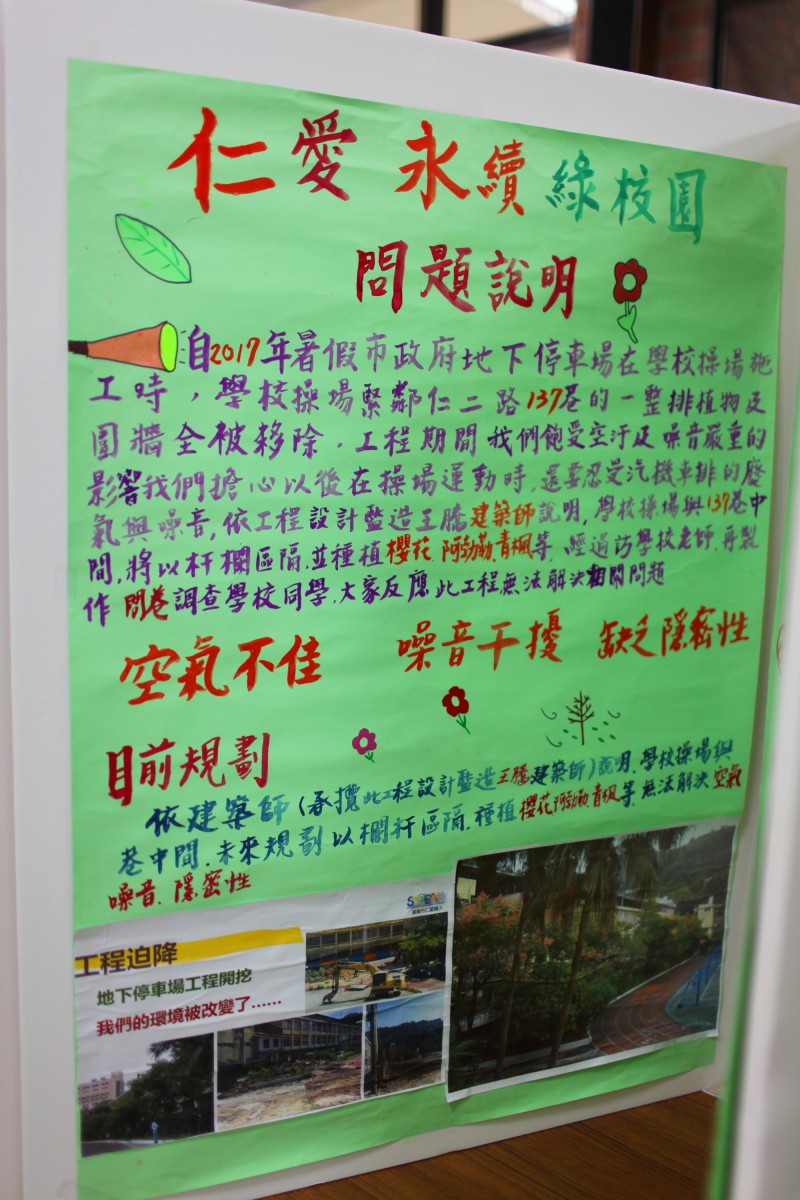 仁愛 永續 綠校園
問題說明
自2017年暑假市政府地下停車場在學校操場施
工時，學校操場緊鄰仁二路137巷的一整排植物及
圍牆全被移除．工程期間我們飽受空汙及噪音嚴重的
影響我們擔心以後在操場運動時,還要忍受汽機車排的廢
氣與噪音,依工程設計監造王騰建築師說明,學校操場與137巷中
間,將以杆欄區隔.並種植櫻花.阿勃勒.青楓等．經過訪學校老師.再製
作問卷調查學校同學.大家反應此工程無法解決相關問題
空氣不佳 噪音干擾 缺乏隱密性
目前規劃
依建築師(承攬此工程設計監造王騰建築師)說明．學校操場與
巷中間．未來規劃以欄杆區隔．種植櫻花阿勃勒.青楓等．無法解決空氣
噪音．隱密性
工程迫降
地下停車場工程開挖
我們的環境被改變了……